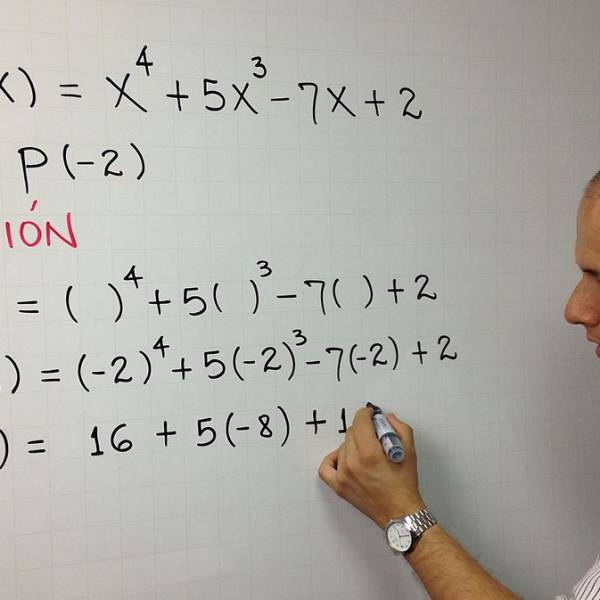 x) = x⁴ + 5x³ - 7x + 2
P(-2)
IÓN
= ( )⁴ + 5( )³ - 7( ) + 2
) = (-2)⁴ + 5(-2)³ - 7(-2) + 2
) = 16 + 5(-8) + 1